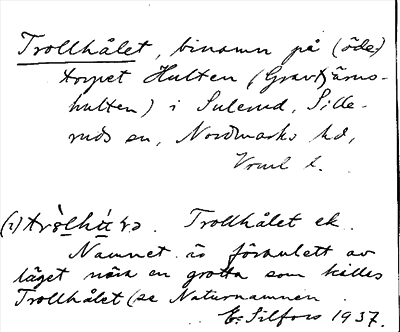 Trollhålet, binamn på (öde)
torpet Hulten (Gravtjärns-
hulten) i Sulerud, Sille-
ruds sn, Nordmarks hd,
Vrml l.
Trollhålet ek.
Namnet är föranlett av
läget nära en grotta som kallas
Trollhålet (se Naturnamnen
E. Silfors 1937.